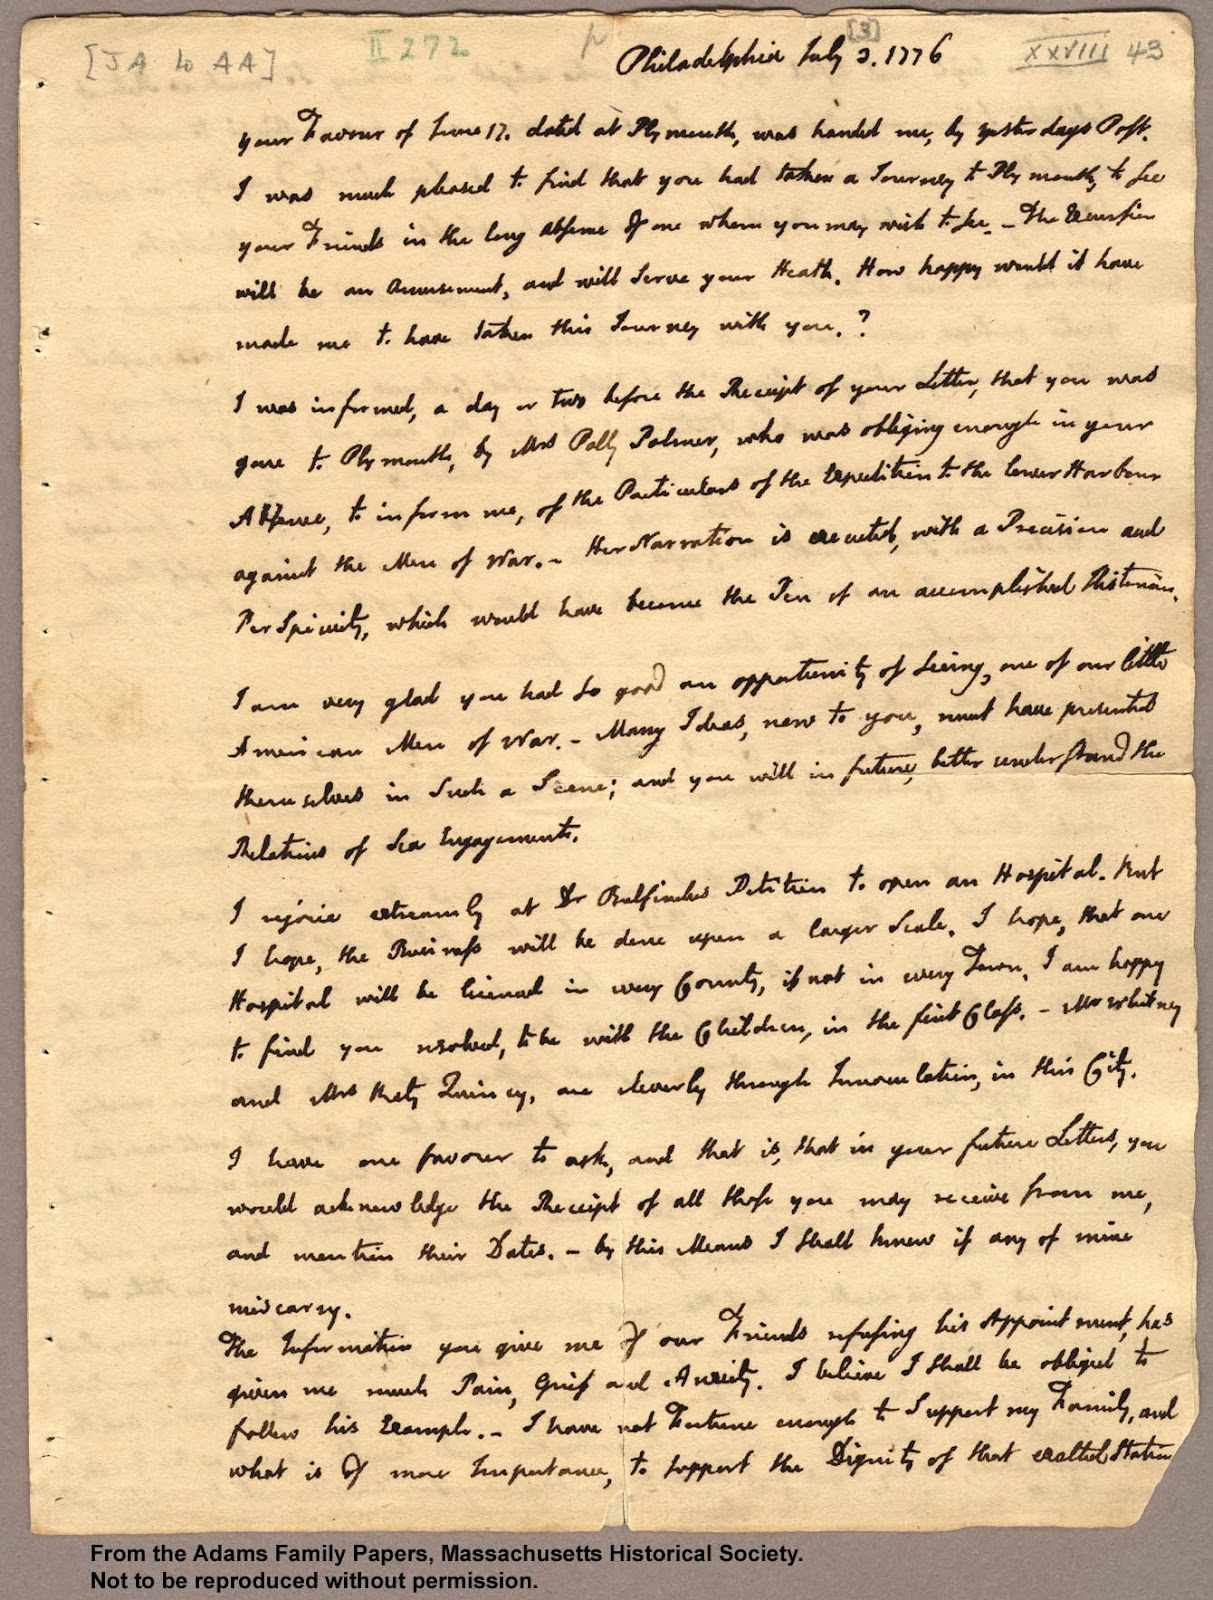 [JA to AA]
II 272
[3]
XXVIII 43
Philadelphia July 3. 1776
your Favour of June 17. dated at Plymouth, was handed me, by yesterdays Post.
I was much pleased to find that you had taken a Journey to Plymouth, to See
your Friends in the long Absence of one whom you may wish to See. – The Excursion
will be an Amusement, and will Serve your Heath. How happy would it have
made me to have taken this Journey with you. ?
I was informed, a day or two before the Receipt of your Letter, that you was
gone to Plymouth, by Mrs Polly Palmer, who was obliging enough in your
Absence, to inform me, of the Particulars of the Expedition to the lower Harbour
against the Men of War. – Her Narration is executed, with a Precision and
PerSpicuity, which would have become the Pen of an accomplished Historian.
I am very glad you had So good an opportunity of Seeing, one of our little
American Men of War. – Many Ideas, new to you, must have presented
themselves in Such a Scene; and you will in future, better understand the
Relations of Sea Engagements.
I rejoice extreamly at Dr Bulfinches Petition to open an Hospital. But
I hope, the Business will be done upon a larger Scale. I hope, that one
Hospital will be licensed in every County, if not in every Town. I am happy
to find you resolved, to be with the Children, in the first Class. – Mr Whitney
and Mrs Katy Quincy, are cleverly through Innoculation, in this City.
I have one favour to ask, and that is, that in your future Letters, you
would acknowledge the Receipt of all those you may receive from me,
and mention their Dates. – by this Means I Shall know if any of mine
miscarry.
The Information you give me of our Friends refusing his Appointment, has
given me much Pain, Grief and Anxiety. I believe I Shall be obliged to
follow his Example. – I have not Fortune enough to Support my Family, and
what is of more Importance, to support the Dignity of that exalted Station
From the Adams Family Papers, Massachusetts Historical Society.
Not to be reproduced without permission.